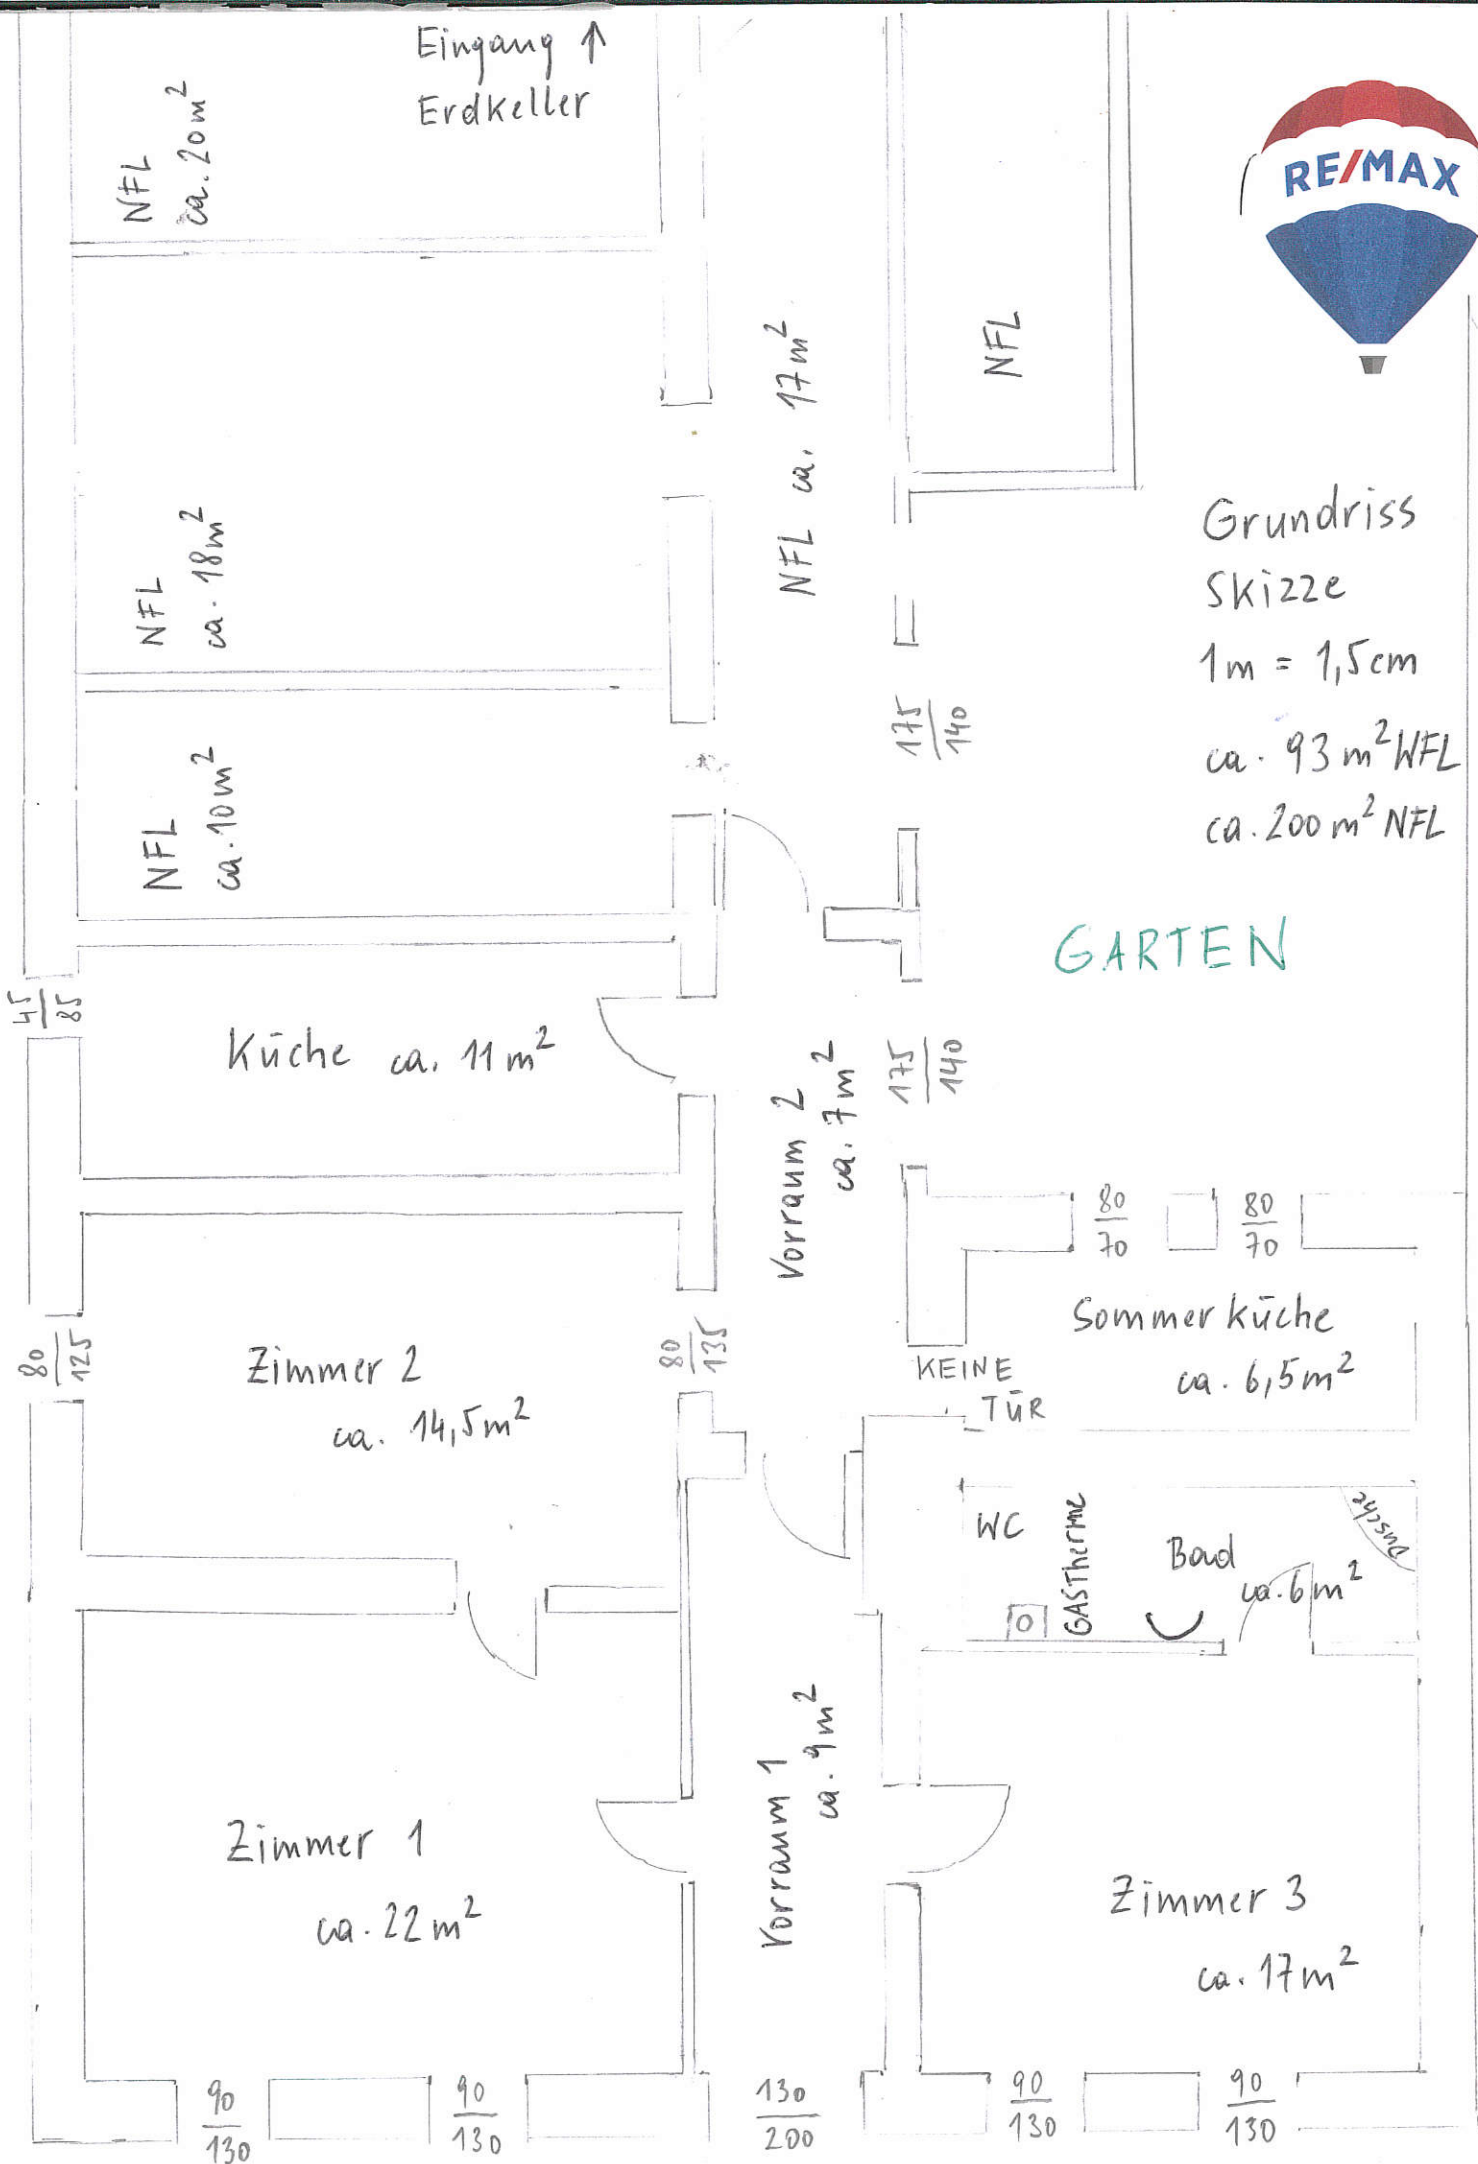 Eingang ↑
Erdkeller
NFL
ca. 20m²
RE/MAX
NFL
NFL ca. 17m²
NFL
ca. 18m²
Grundriss
Skizze
1m = 1,5cm
ca. 93 m² WFL
ca. 200 m² NFL
175
140
NFL
ca. 10m²
GARTEN
45
85
Küche ca. 11m²
Vorraum 2
ca. 7m²
175
140
80
70
80
70
Sommerküche
ca. 6,5m²
KEINE
TÜR
80
125
Zimmer 2
ca. 14,5m²
80
135
WC
GASTherme
Bad
ca. 6m²
Dusche
Zimmer 1
ca. 22m²
Vorraum 1
ca. 9m²
Zimmer 3
ca. 17m²
90
130
90
130
130
200
90
130
90
130